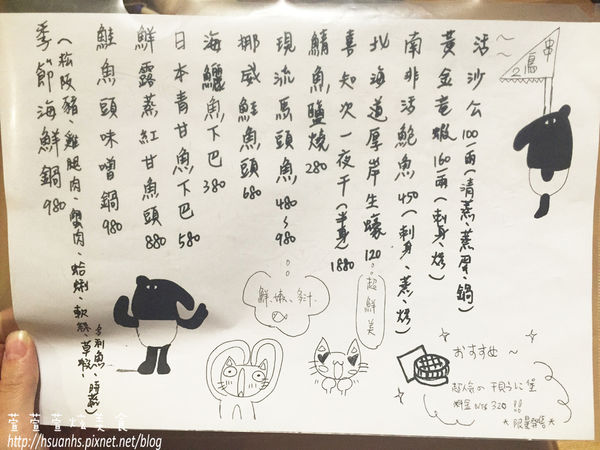 活沙公 100/兩(清蒸、蒸蛋、鍋)
黃金龍蝦 160/兩(刺身、烤)
南非活鮑魚 450(刺身、蒸、烤)
北海道厚岸生蠔 120
喜知次一夜干(半身) 1880
鯖魚鹽燒 280
現流馬頭魚 480~980
挪威鮭魚頭 680
海鱺魚下巴 380
日本青甘魚下巴 580
鮮露蒸紅甘魚頭 880
鮭魚頭味噌鍋 980
季節海鮮鍋 980
(松阪豬、雞腿肉、蟹肉、蛤蜊、軟絲、草蝦、多利魚、時蔬)
串
鳥
2
超鮮美
鮮、嫩、多汁
おすすめ~
超人気の干貝うに堡
料金 NT$ 320
★限量發售★
萱萱萱燒美食
http://hsuanhs.pixnet.net/blog